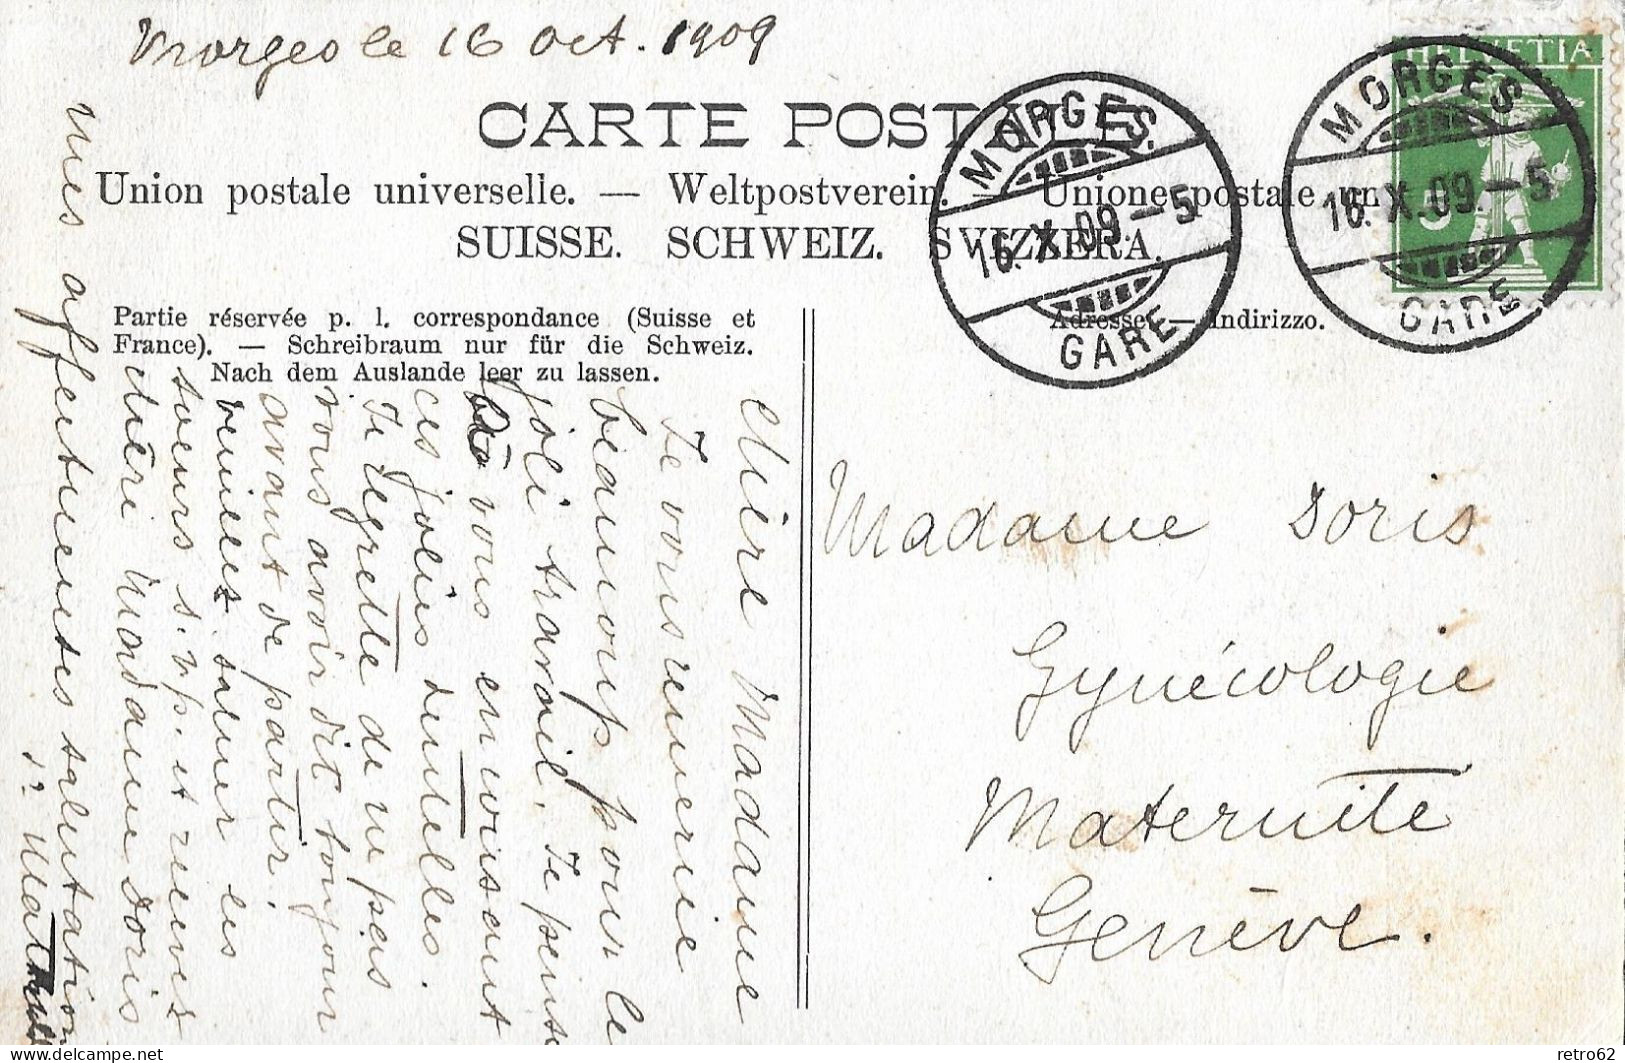 Morges le 16 Oct. 1909
CARTE POSTALE
Union postale universelle. — Weltpostverein. — Unione postale un
SUISSE. SCHWEIZ. SVIZZERA.
Partie réservée p. l. correspondance (Suisse et
France). — Schreibraum nur für die Schweiz.
Nach dem Auslande leer zu lassen.
Adresse — Indirizzo.
HELVETIA
5
MORGES
16. X. 09. — 5
GARE
MORGES.
16. X. 09. — 5
GARE
Chère Madame
Je vous remercie
beaucoup pour le
joli travail. Je pense
à vous en voisant
ces jolies dentelles.
Je regrette de ne pas
vous avoir dit bonjour
avant de partir.
Veuillez saluer les
soeurs s.v.p. et recevez
chère Madame Doris
mes affectueuses salutation
Madame Doris
Gynécologie
Maternité
Genève.
delcampe.net
retro62